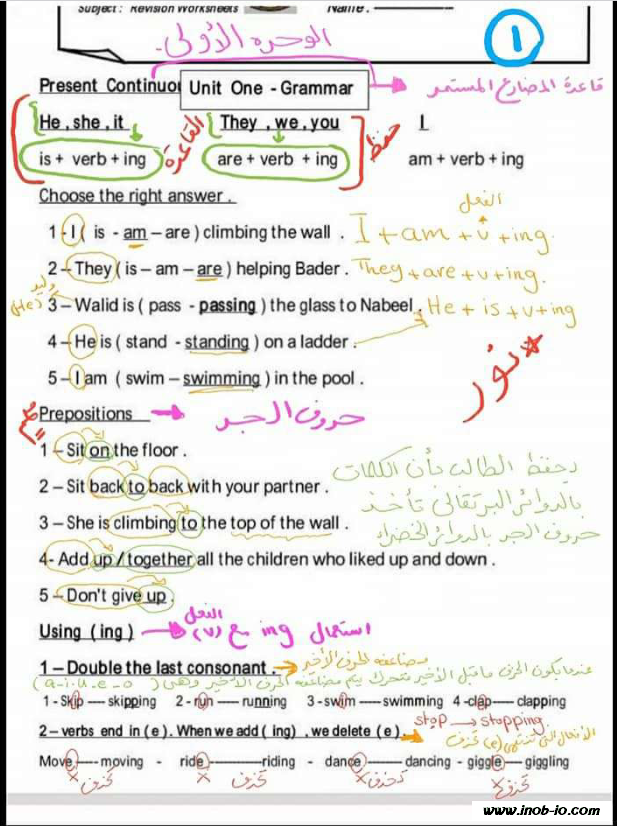 Subject : Revision Worksheets Name :
الوحدة الأولى.
1
Present Continuou
Unit One - Grammar
قاعدة المضارع المستمر
He , she , it They , we , you I
القاعدة
حفظ
is + verb + ing are + verb + ing am + verb + ing
Choose the right answer .
الفعل
1 - I ( is - am – are ) climbing the wall . I + am + v + ing.
2 – They ( is – am – are ) helping Bader . They + are + v + ing.
وليد
(He) 3 – Walid is ( pass - passing ) the glass to Nabeel . He + is + v + ing
4 – He is ( stand - standing ) on a ladder .
5 – I am ( swim – swimming ) in the pool .
نور
Prepositions حروف الجر
1 – Sit on the floor .
يحفظ الطالب بأن الكلمات
2 – Sit back to back with your partner .
بالدوائر البرتقالي تأخذ
3 – She is climbing to the top of the wall .
حروف الجر بالدوائر الخضراء
4- Add up / together all the children who liked up and down .
5 – Don't give up .
Using ( ing ) استعمال ing مع (v) الفعل
1 – Double the last consonant . مضاعفة الحرف الأخير
عندما يكون الحرف ما قبل الأخير متحرك يتم مضاعفة الحرف الأخير وهي ( a - i - u - e - o )
1 - Skip ---- skipping 2 - run ---- running 3 - swim ---- swimming 4 - clap ---- clapping
stop → stopping
2 – verbs end in ( e ) . When we add ( ing ) , we delete ( e ) .
الأفعال التي تنتهي (e) تحذف
Move ---- moving - ride ---------- riding - dance --------- dancing - giggle --- giggling
تحذف تحذف تحذف تحذف
www.inob-io.com